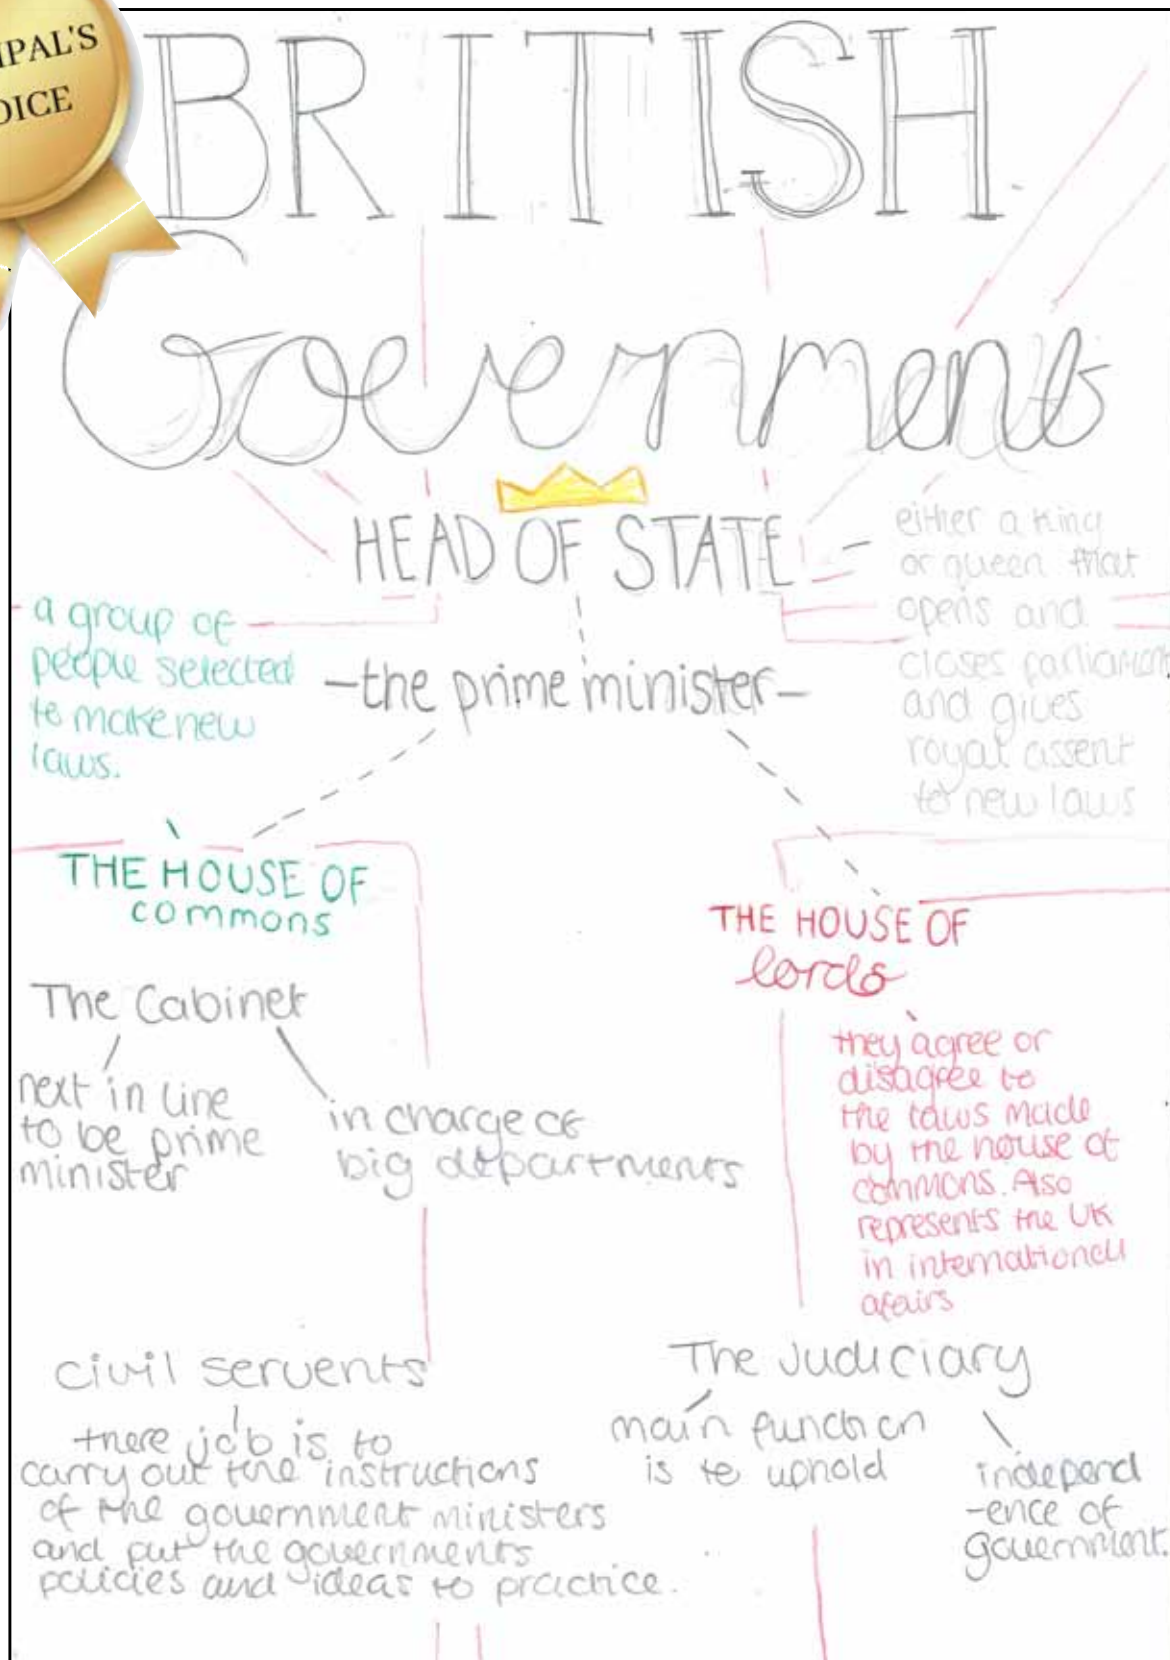 IPAL'S
OICE
BRITISH
Government
HEAD OF STATE
either a king
or queen that
opens and
closes parliament
and gives
royal assent
to new laws
a group of
people selected
to make new
laws.
-the prime minister-
THE HOUSE OF
commons
THE HOUSE OF
lords
The Cabinet
next in line
to be prime
minister
in charge of
big departments
they agree or
disagree to
the laws made
by the house of
commons. Also
represents the UK
in internationall
afairs
civil servents
there job is to
carry out the instructions
of the government ministers
and put the governments
policies and ideas to practice.
The Judiciary
main function
is to uphold
independ
-ence of
government.